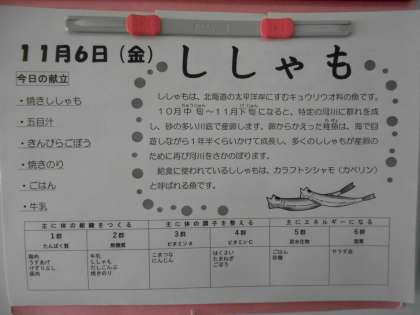 11月6日（金）
ししゃも
今日の献立
・焼きししゃも
・五目汁
・きんぴらごぼう
・焼きのり
・ごはん
・牛乳
ししゃもは、北海道の太平洋岸にすむキュウリウオ科の魚です。
10月中旬～11月下旬になると、特定の河川に群れを成
し、砂の多い川底で産卵します。卵からかえった稚魚は、海で回
遊しながら1年半くらいかけて成長し、多くのししゃもが産卵の
ために再び河川をさかのぼります。
給食に使われているししゃもは、カラフトシシャモ（カペリン）
と呼ばれる魚です。
主に体の組織をつくる 主に体の調子を整える 主にエネルギーになる
1群 2群 3群 4群 5群 6群
たんぱく質 無機質 ビタミンA ビタミンC 炭水化物 脂質
鶏肉 牛乳 こまつな はくさい ごはん サラダ油
うすあげ ししゃも にんじん たまねぎ 砂糖
けずりぶし だしこんぶ ごぼう
豚肉 焼きのり